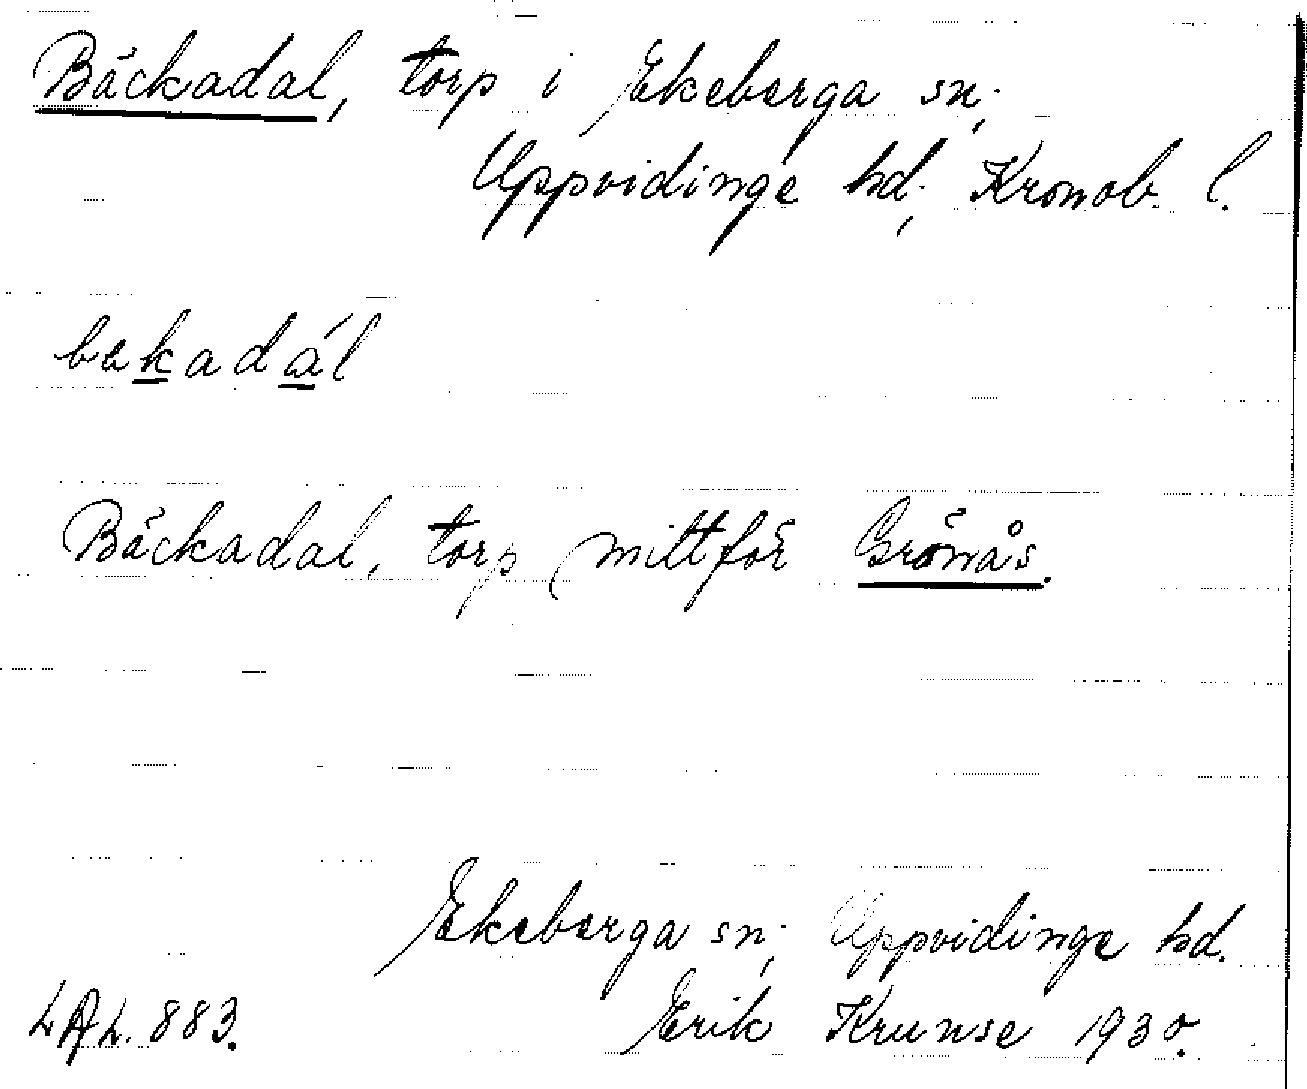 Bäckadal, torp i Ekeberga sn.,
Uppvidinge hd., Kronob. l.
bekadál
Bäckadal, torp mittför Grönås.
Ekeberga sn., Uppvidinge hd.
LAL. 883. Erik Krunse 1930.